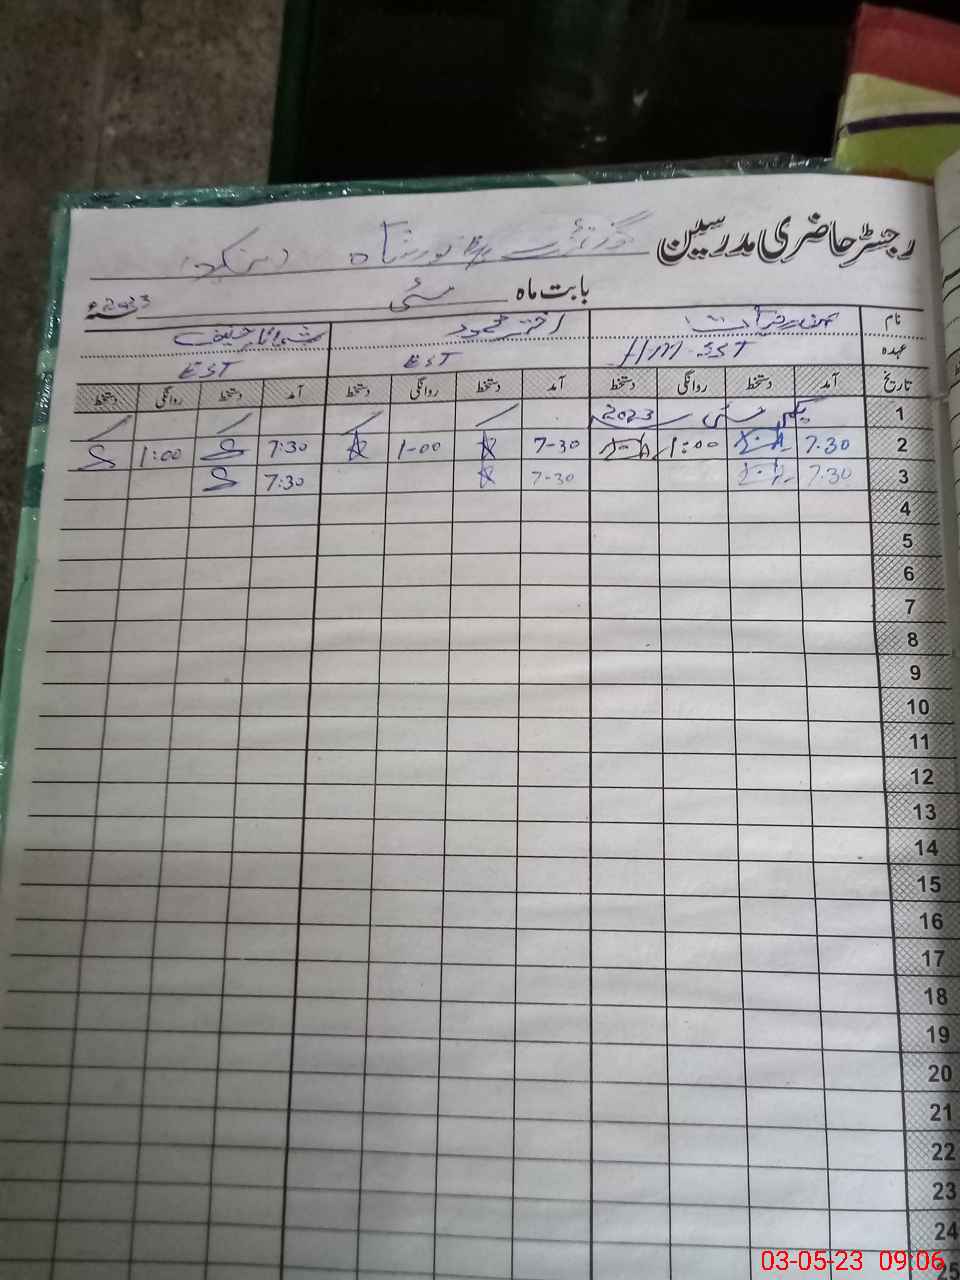 رجسٹر حاضری مدرسین
بابت ماہ مئی 2023ء
نام اختر محمود
عہدہ HM-SST EST EST
تاریخ آمد دستخط روانگی دستخط آمد دستخط روانگی دستخط آمد دستخط روانگی دستخط
1 یکم مئی 2023
2 7.30 1:00 7-30 1-00 7:30 1:00
3 7.30 7-30 7:30
4
5
6
7
8
9
10
11
12
13
14
15
16
17
18
19
20
21
22
23
24
25
03-05-23 09:06